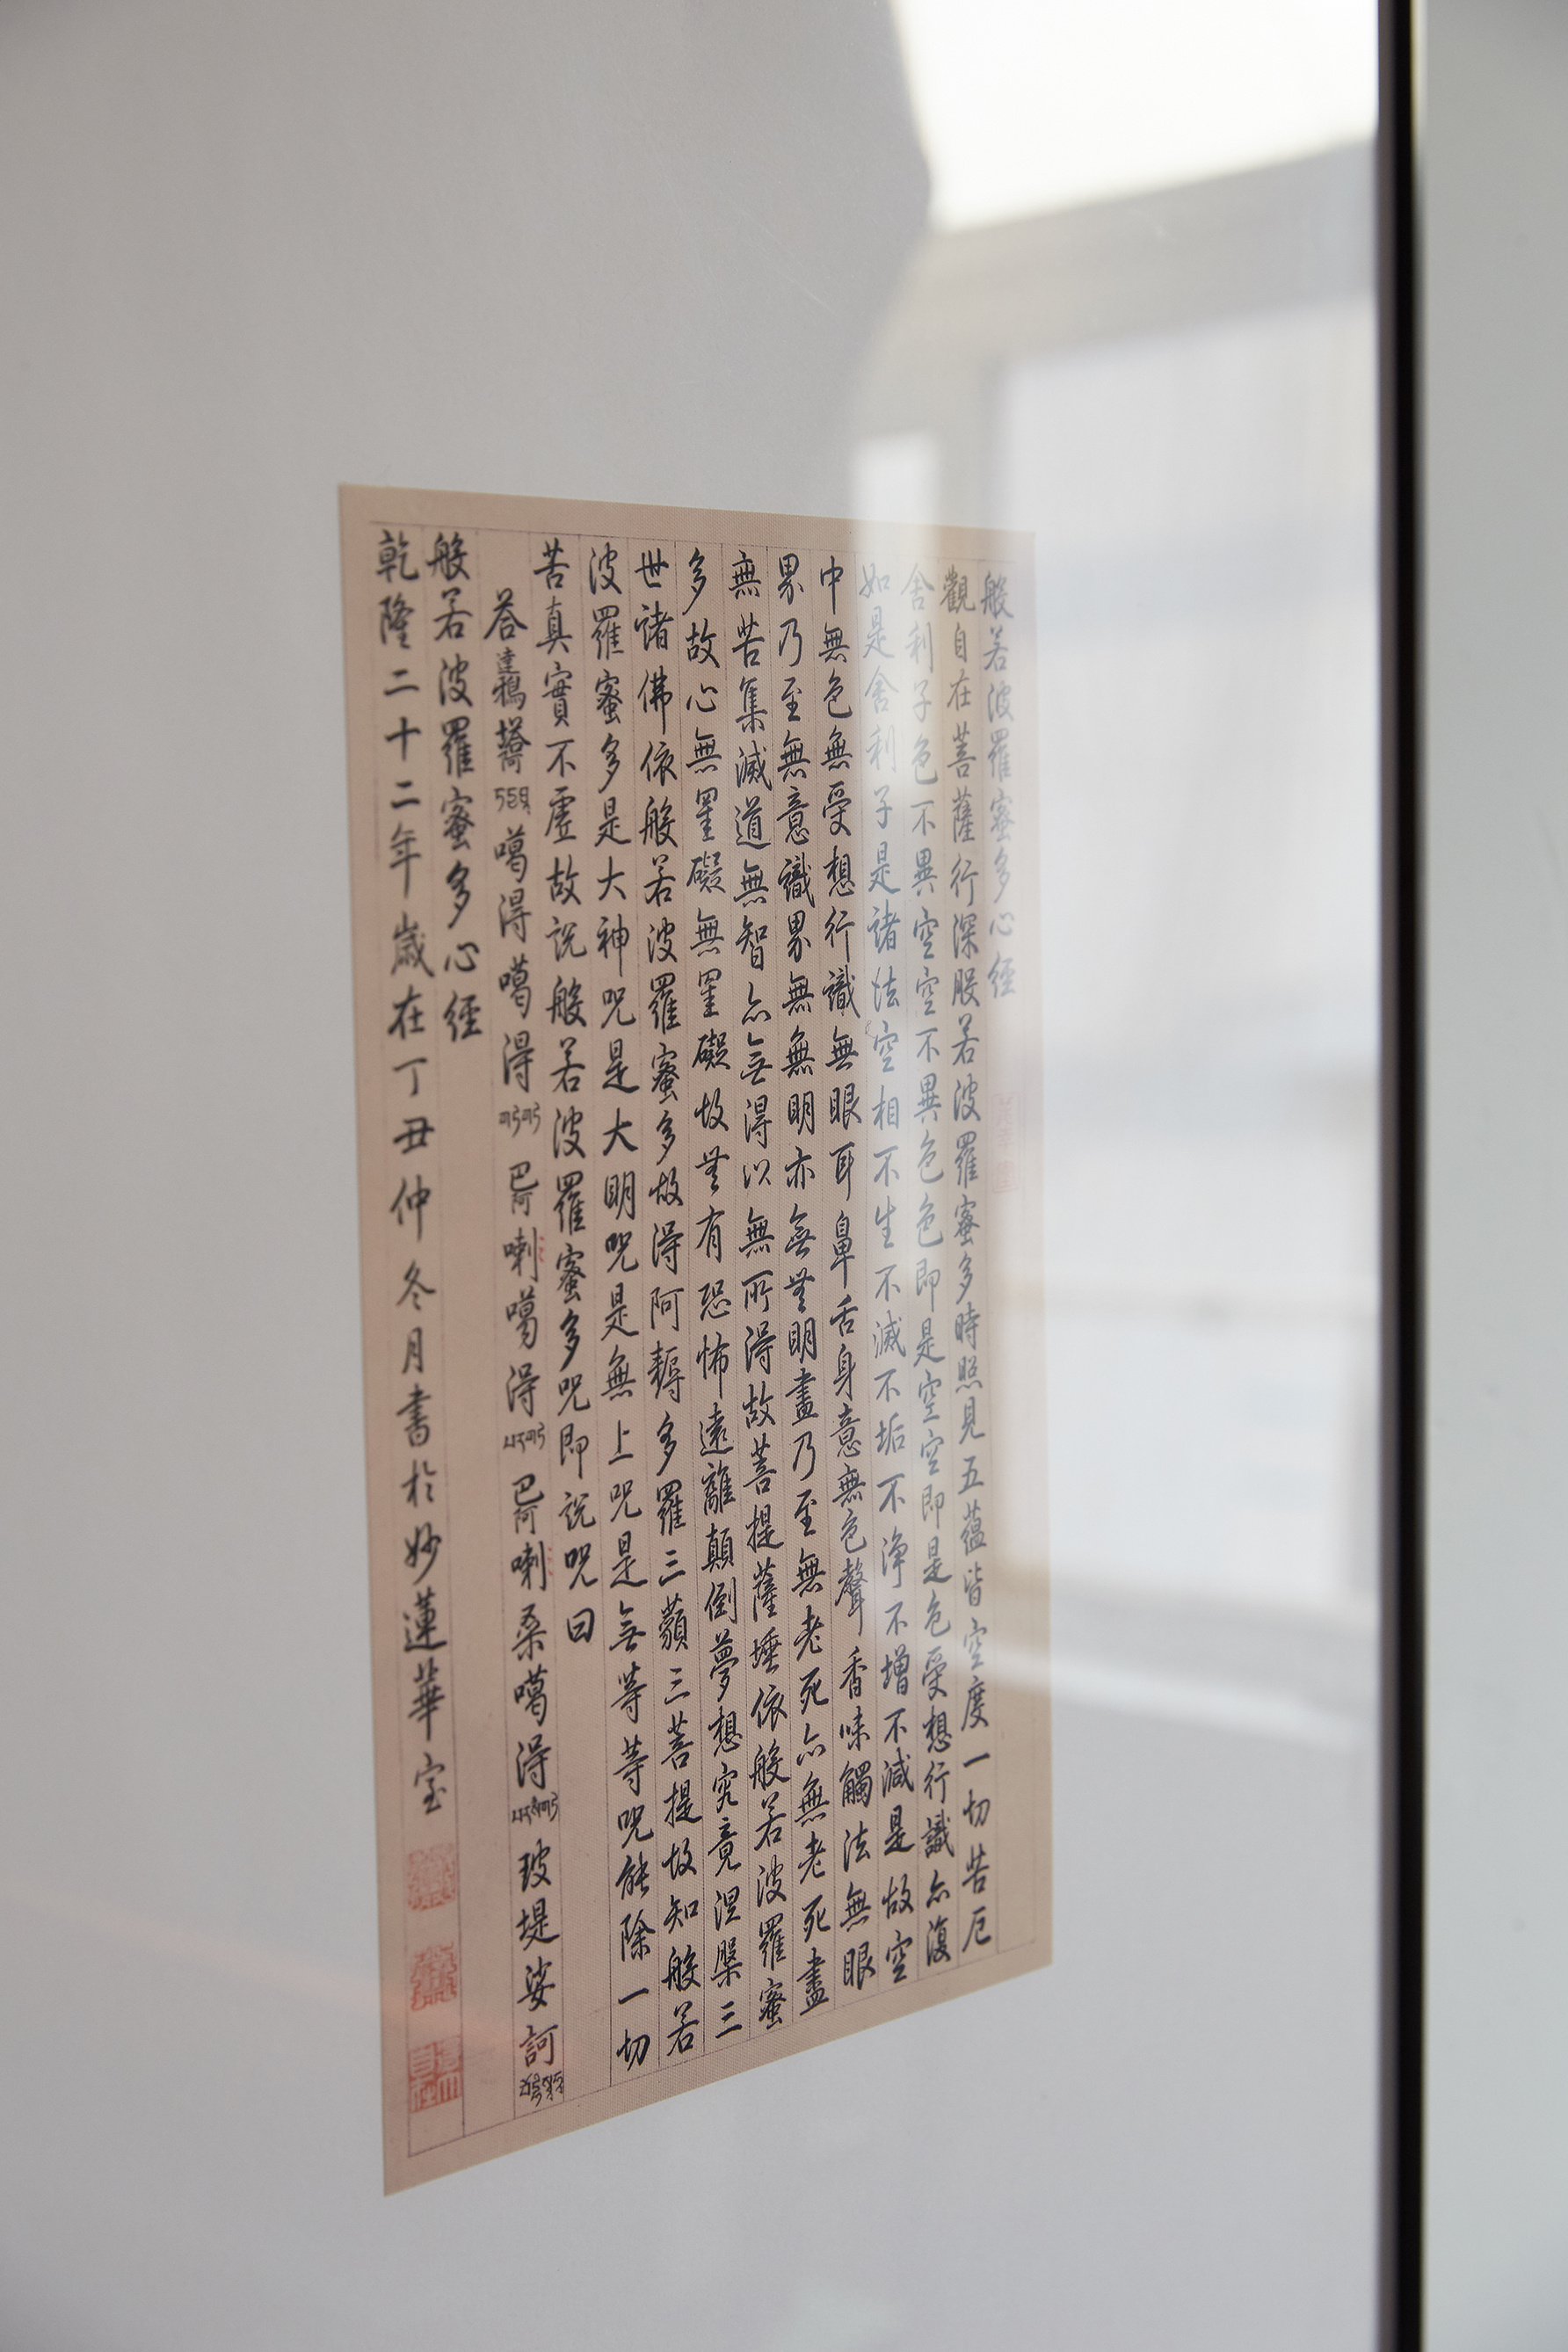 般若波羅蜜多心經
觀自在菩薩行深般若波羅蜜多時照見五蘊皆空度一切苦厄
舍利子色不異空空不異色色即是空空即是色受想行識亦復
如是舍利子是諸法空相不生不滅不垢不淨不增不減是故空
中無色無受想行識無眼耳鼻舌身意無色聲香味觸法無眼
界乃至無意識界無無明亦無無明盡乃至無老死亦無老死盡
無苦集滅道無智亦無得以無所得故菩提薩埵依般若波羅蜜
多故心無罣礙無罣礙故無有恐怖遠離顛倒夢想究竟涅槃三
世諸佛依般若波羅蜜多故得阿耨多羅三藐三菩提故知般若
波羅蜜多是大神呪是大明呪是無上呪是無等等呪能除一切
苦真實不虛故說般若波羅蜜多呪即說呪曰
答達鴉塔噶得噶得巴阿喇噶得巴阿喇桑噶得玻堤娑訶
般若波羅蜜多心經
乾隆二十二年歲在丁丑仲冬月書於妙蓮華室